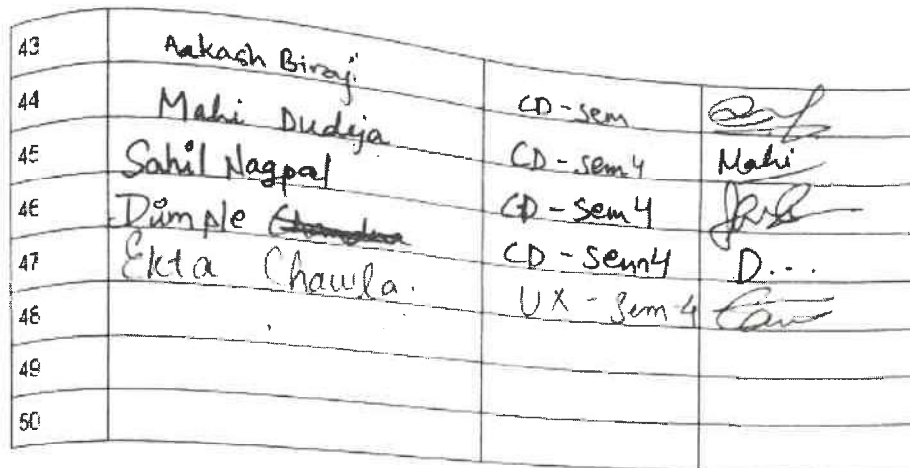 43 Aakash Biraji CD-sem
44 Mahi Dudeja CD-sem 4 Mahi
45 Sahil Nagpal CD-sem 4
46 Dimple CD-sem 4 D...
47 Ekta Chawla. UX-Sem 4
48
49
50